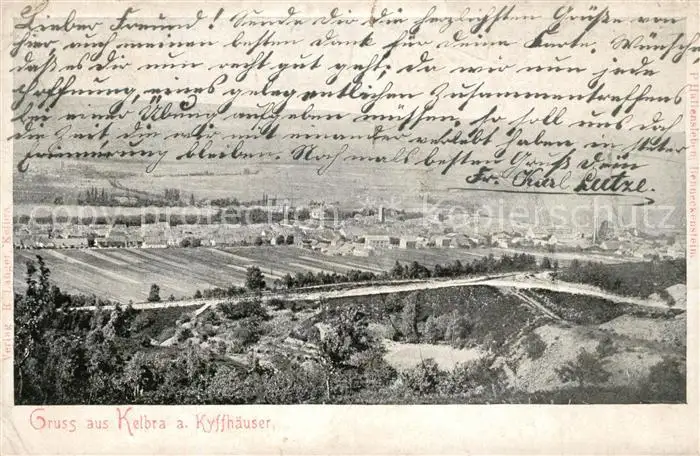 Lieber Freund! Sende Dir die herzlichsten Grüße von
hier, auch meinen besten Dank für deine Karte. Wünsch,
daß es Dir nun recht gut geht, da wir nun jede
Hoffnung, eines gelegentlichen Zusammentreffens
bei einer Übung aufgeben müssen, so soll uns doch
die Zeit die wir mit einander verlebt haben, in steter
Erinnerung bleiben. Nochmals besten Gruß dein
Fr. Karl Lutze.
copyrights by kunsthandel kopierschutz
Verlag
Kelbra.
Gruss aus Kelbra a. Kyffhäuser.